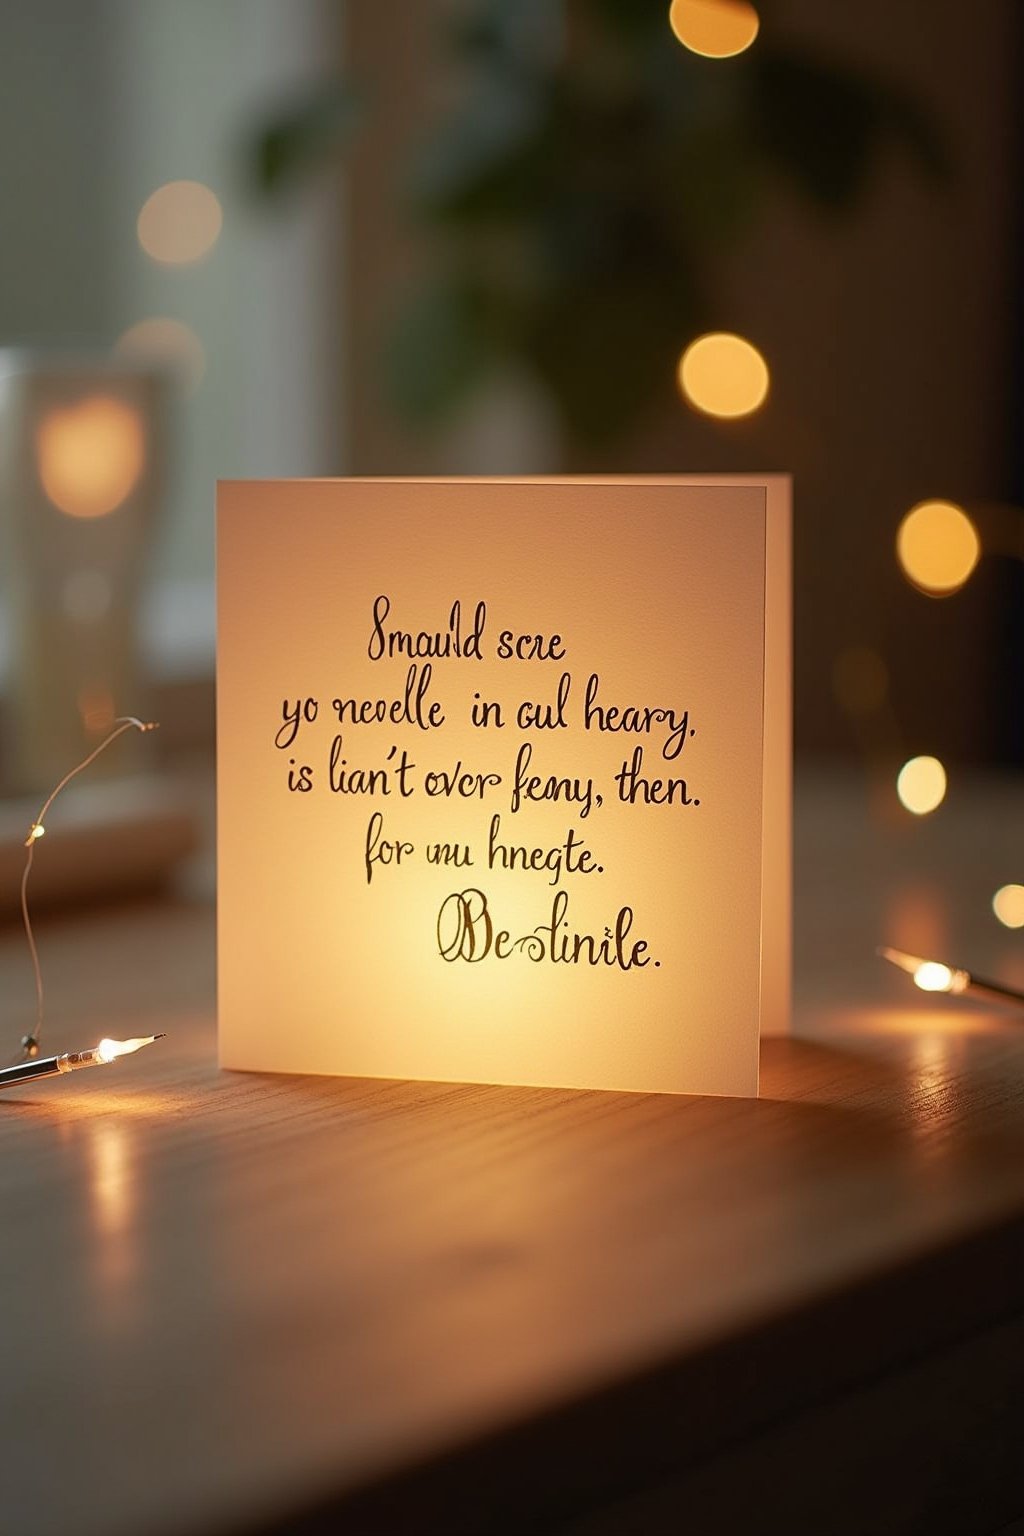 Smauld scre
yo nevelle in oul heary.
is lian't over feany, then.
for unu hnegte.
Bestinile.